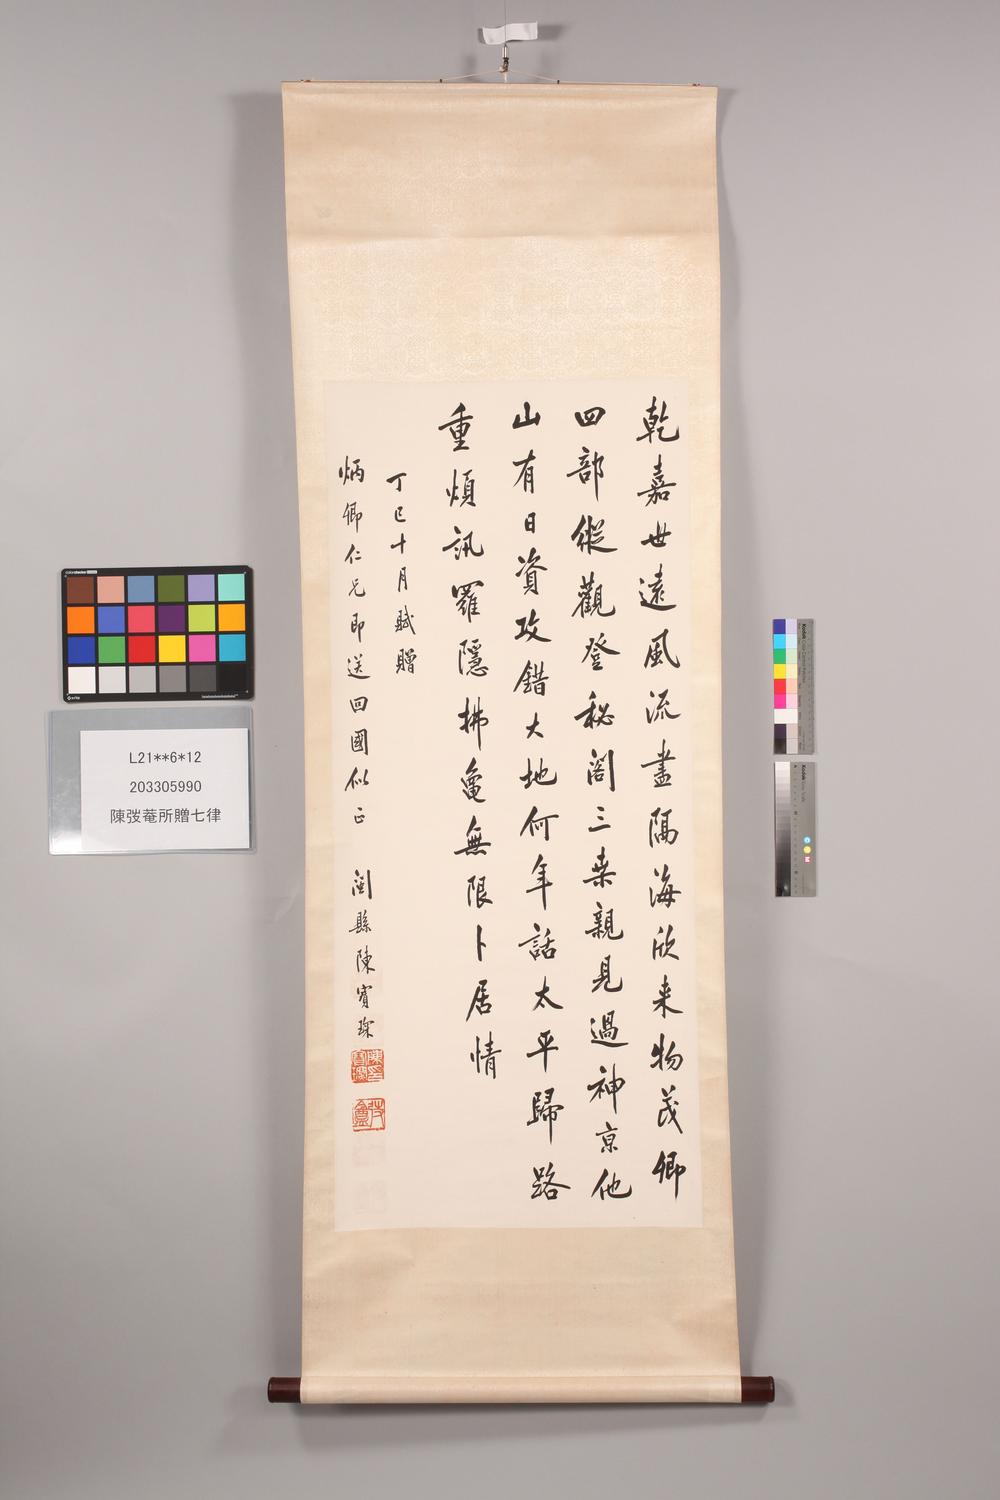 乾嘉世遠風流盡隔海欣来物茂卿
四部縱觀登秘閣三桒親見過神京他
山有日資攻錯大地何年話太平歸路
重煩訊羅隱拂龜無限卜居情
丁巳十月賦贈
炳卿仁兄即送回國似正
閩縣陳寳琛
L21**6*12
203305990
陳弢菴所贈七律